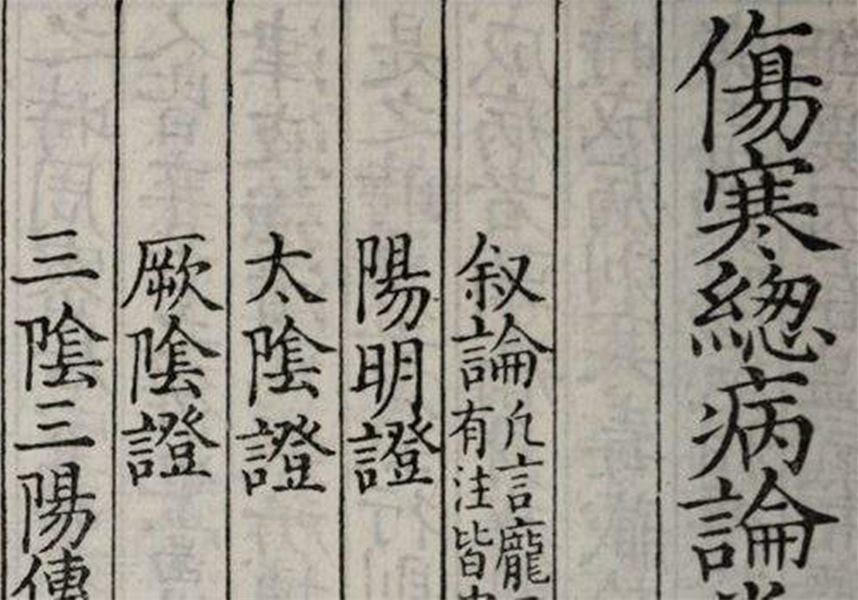 傷寒緫病論
叙論
凢言龐
有注皆
陽明證
太陰證
厥陰證
三陰三陽傳